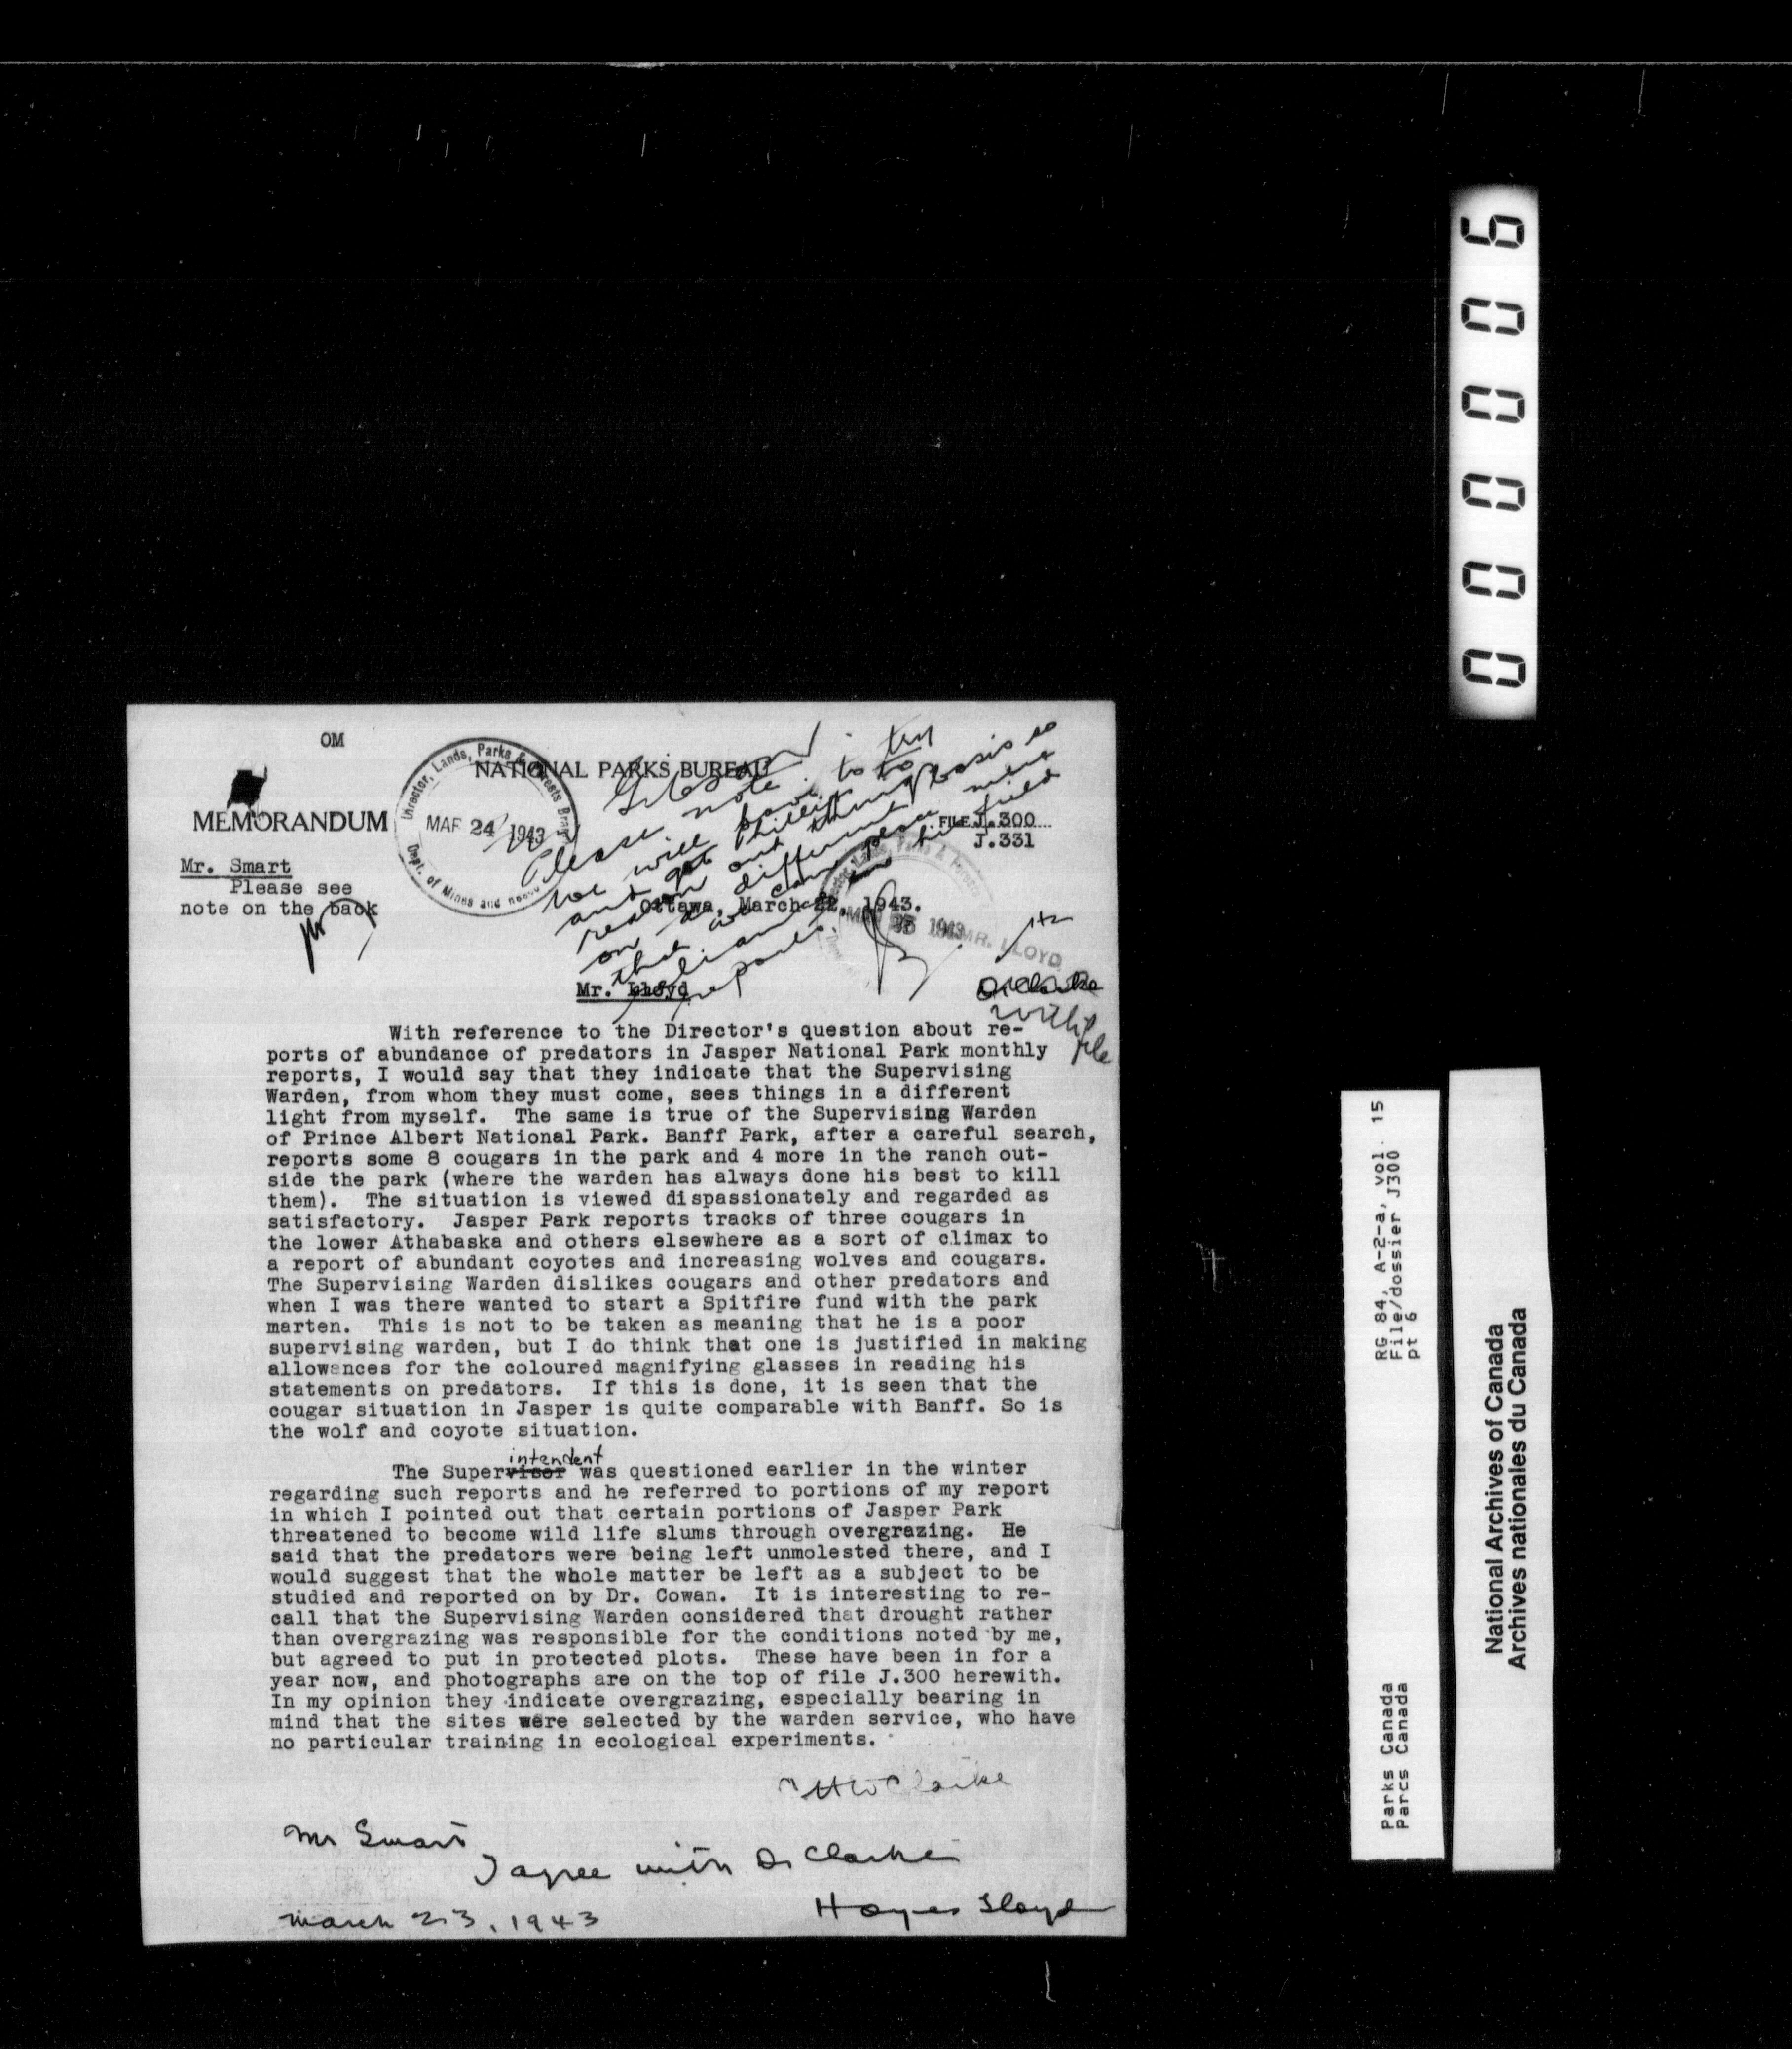 OM
NATIONAL PARKS BUREAU
MEMORANDUM
Director, Lands, Parks & Forests Branch
MAR 24 1943
Dept. of Mines and
Gibson
Please note
we will have to try
and get Phillips to
reason out things
on a different basis so
that we can place more
reliance on his field
reports.
FILE J.300
J.331
Mr. Smart
Please see
note on the back
Ottawa, March 22, 1943.
1943
MR. LLOYD
Dr Clarke
with file
Mr. Lloyd
With reference to the Director's question about re-
ports of abundance of predators in Jasper National Park monthly
reports, I would say that they indicate that the Supervising
Warden, from whom they must come, sees things in a different
light from myself. The same is true of the Supervising Warden
of Prince Albert National Park. Banff Park, after a careful search,
reports some 8 cougars in the park and 4 more in the ranch out-
side the park (where the warden has always done his best to kill
them). The situation is viewed dispassionately and regarded as
satisfactory. Jasper Park reports tracks of three cougars in
the lower Athabaska and others elsewhere as a sort of climax to
a report of abundant coyotes and increasing wolves and cougars.
The Supervising Warden dislikes cougars and other predators and
when I was there wanted to start a Spitfire fund with the park
marten. This is not to be taken as meaning that he is a poor
supervising warden, but I do think that one is justified in making
allowances for the coloured magnifying glasses in reading his
statements on predators. If this is done, it is seen that the
cougar situation in Jasper is quite comparable with Banff. So is
the wolf and coyote situation.
intendent
The Supervisor was questioned earlier in the winter
regarding such reports and he referred to portions of my report
in which I pointed out that certain portions of Jasper Park
threatened to become wild life slums through overgrazing. He
said that the predators were being left unmolested there, and I
would suggest that the whole matter be left as a subject to be
studied and reported on by Dr. Cowan. It is interesting to re-
call that the Supervising Warden considered that drought rather
than overgrazing was responsible for the conditions noted by me,
but agreed to put in protected plots. These have been in for a
year now, and photographs are on the top of file J.300 herewith.
In my opinion they indicate overgrazing, especially bearing in
mind that the sites were selected by the warden service, who have
no particular training in ecological experiments.
CHD Clarke
Mr Smart
I agree with Dr Clarke
Hoyes Lloyd
March 23, 1943
000006
RG 84, A-2-a, vol. 15
File/dossier J300
pt 6
Parks Canada
Parcs Canada
National Archives of Canada
Archives nationales du Canada